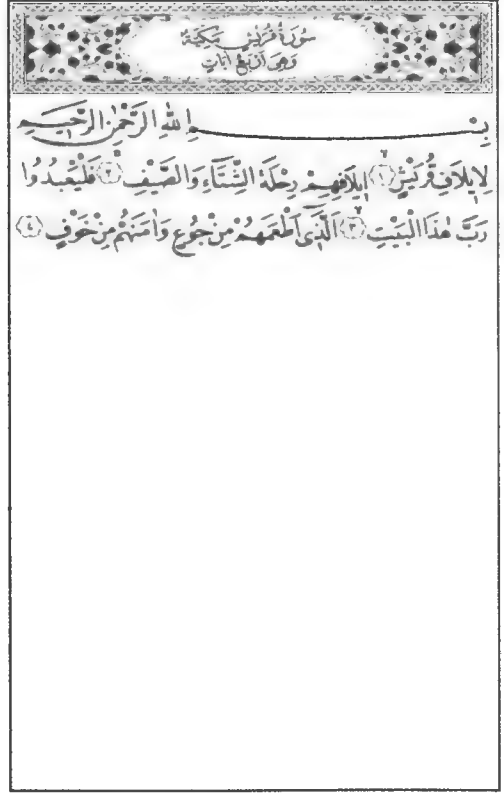 سُورَةُ قُرَيْشٍ مَكِّيَّةٌ
وَهِىَ اَرْبَعُ اٰيَاتٍ
بِسْمِ اللّٰهِ الرَّحْمٰنِ الرَّحٖيمِ
لِاٖيلَافِ قُرَيْشٍ ﴿١﴾ اٖيلَافِهِمْ رِحْلَةَ الشِّتَٓاءِ وَالصَّيْفِ ﴿٢﴾ فَلْيَعْبُدُوا
رَبَّ هٰذَا الْبَيْتِ ﴿٣﴾ اَلَّذٖٓى اَطْعَمَهُمْ مِنْ جُوعٍ وَاٰمَنَهُمْ مِنْ خَوْفٍ ﴿٤﴾